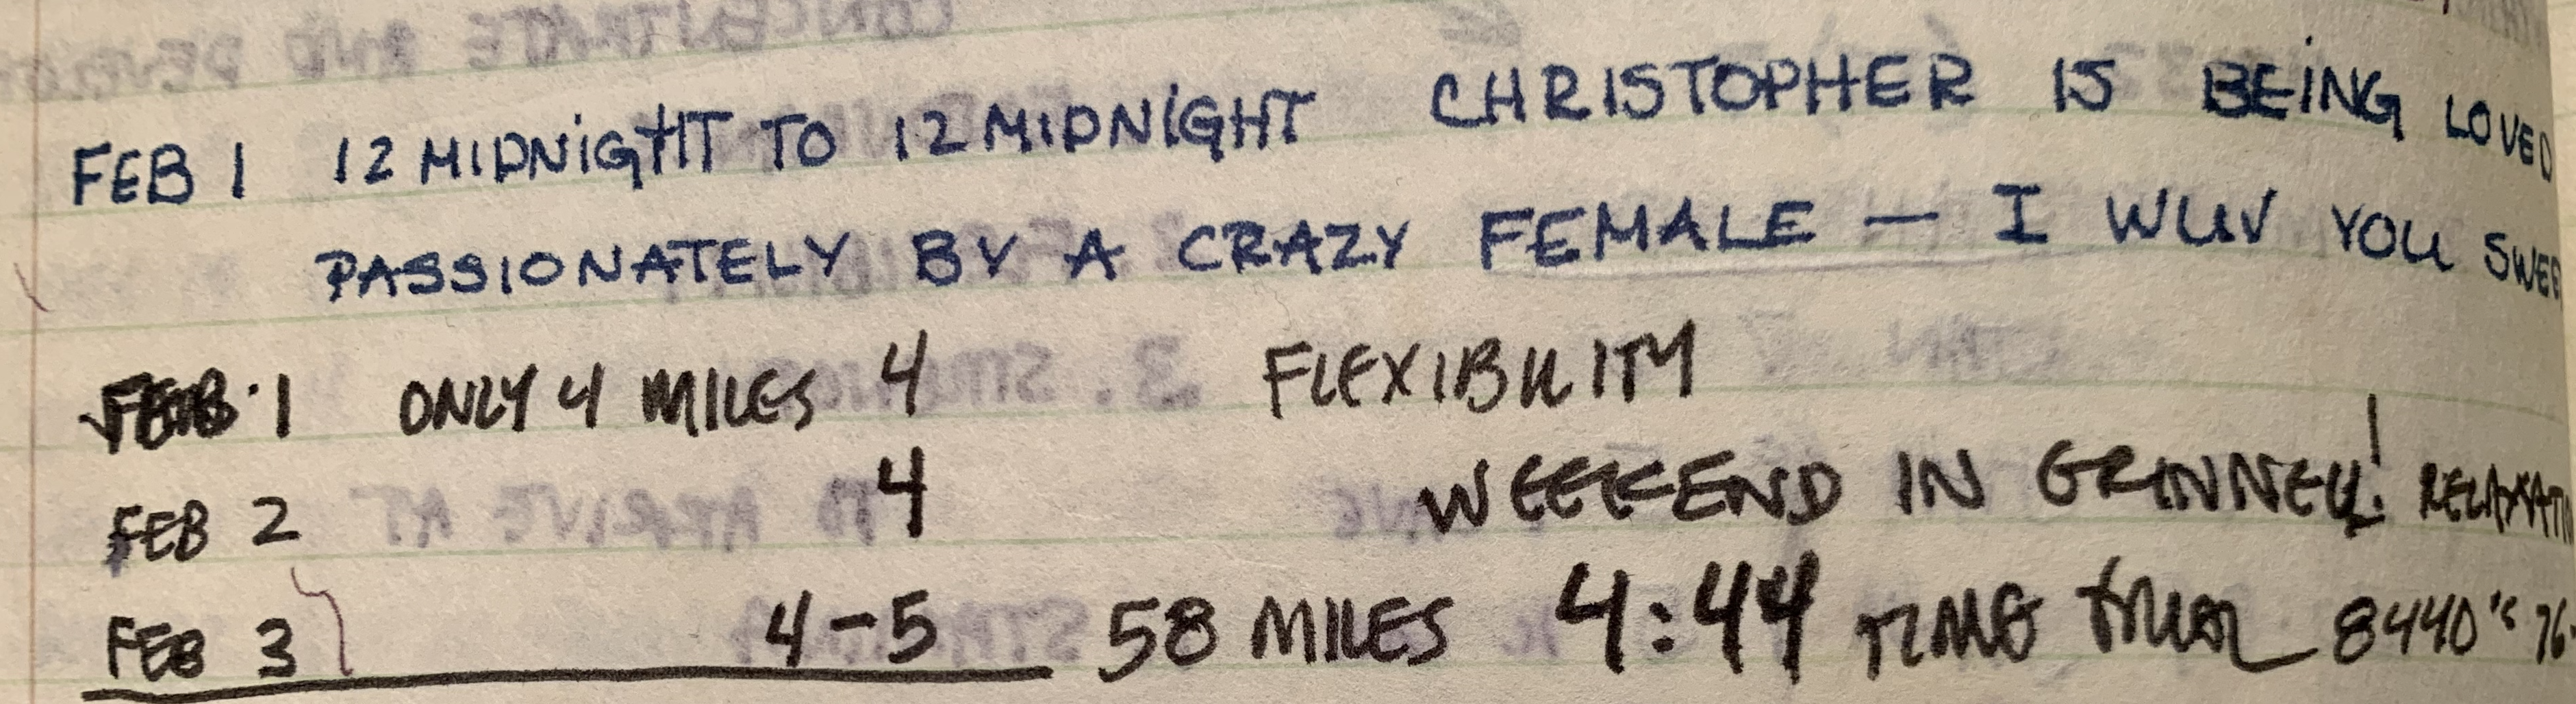 FEB 1 12 MIDNIGHT TO 12 MIDNIGHT CHRISTOPHER IS BEING LOVED
PASSIONATELY BY A CRAZY FEMALE — I WUV YOU SWEE
FEB. 1 ONLY 4 MILES 4 FLEXIBILITY
FEB 2 4 WEEKEND IN GRINNELL! RELAXATIO
FEB 3 4-5 58 MILES 4:44 TIME TRIAL 8440"s 76